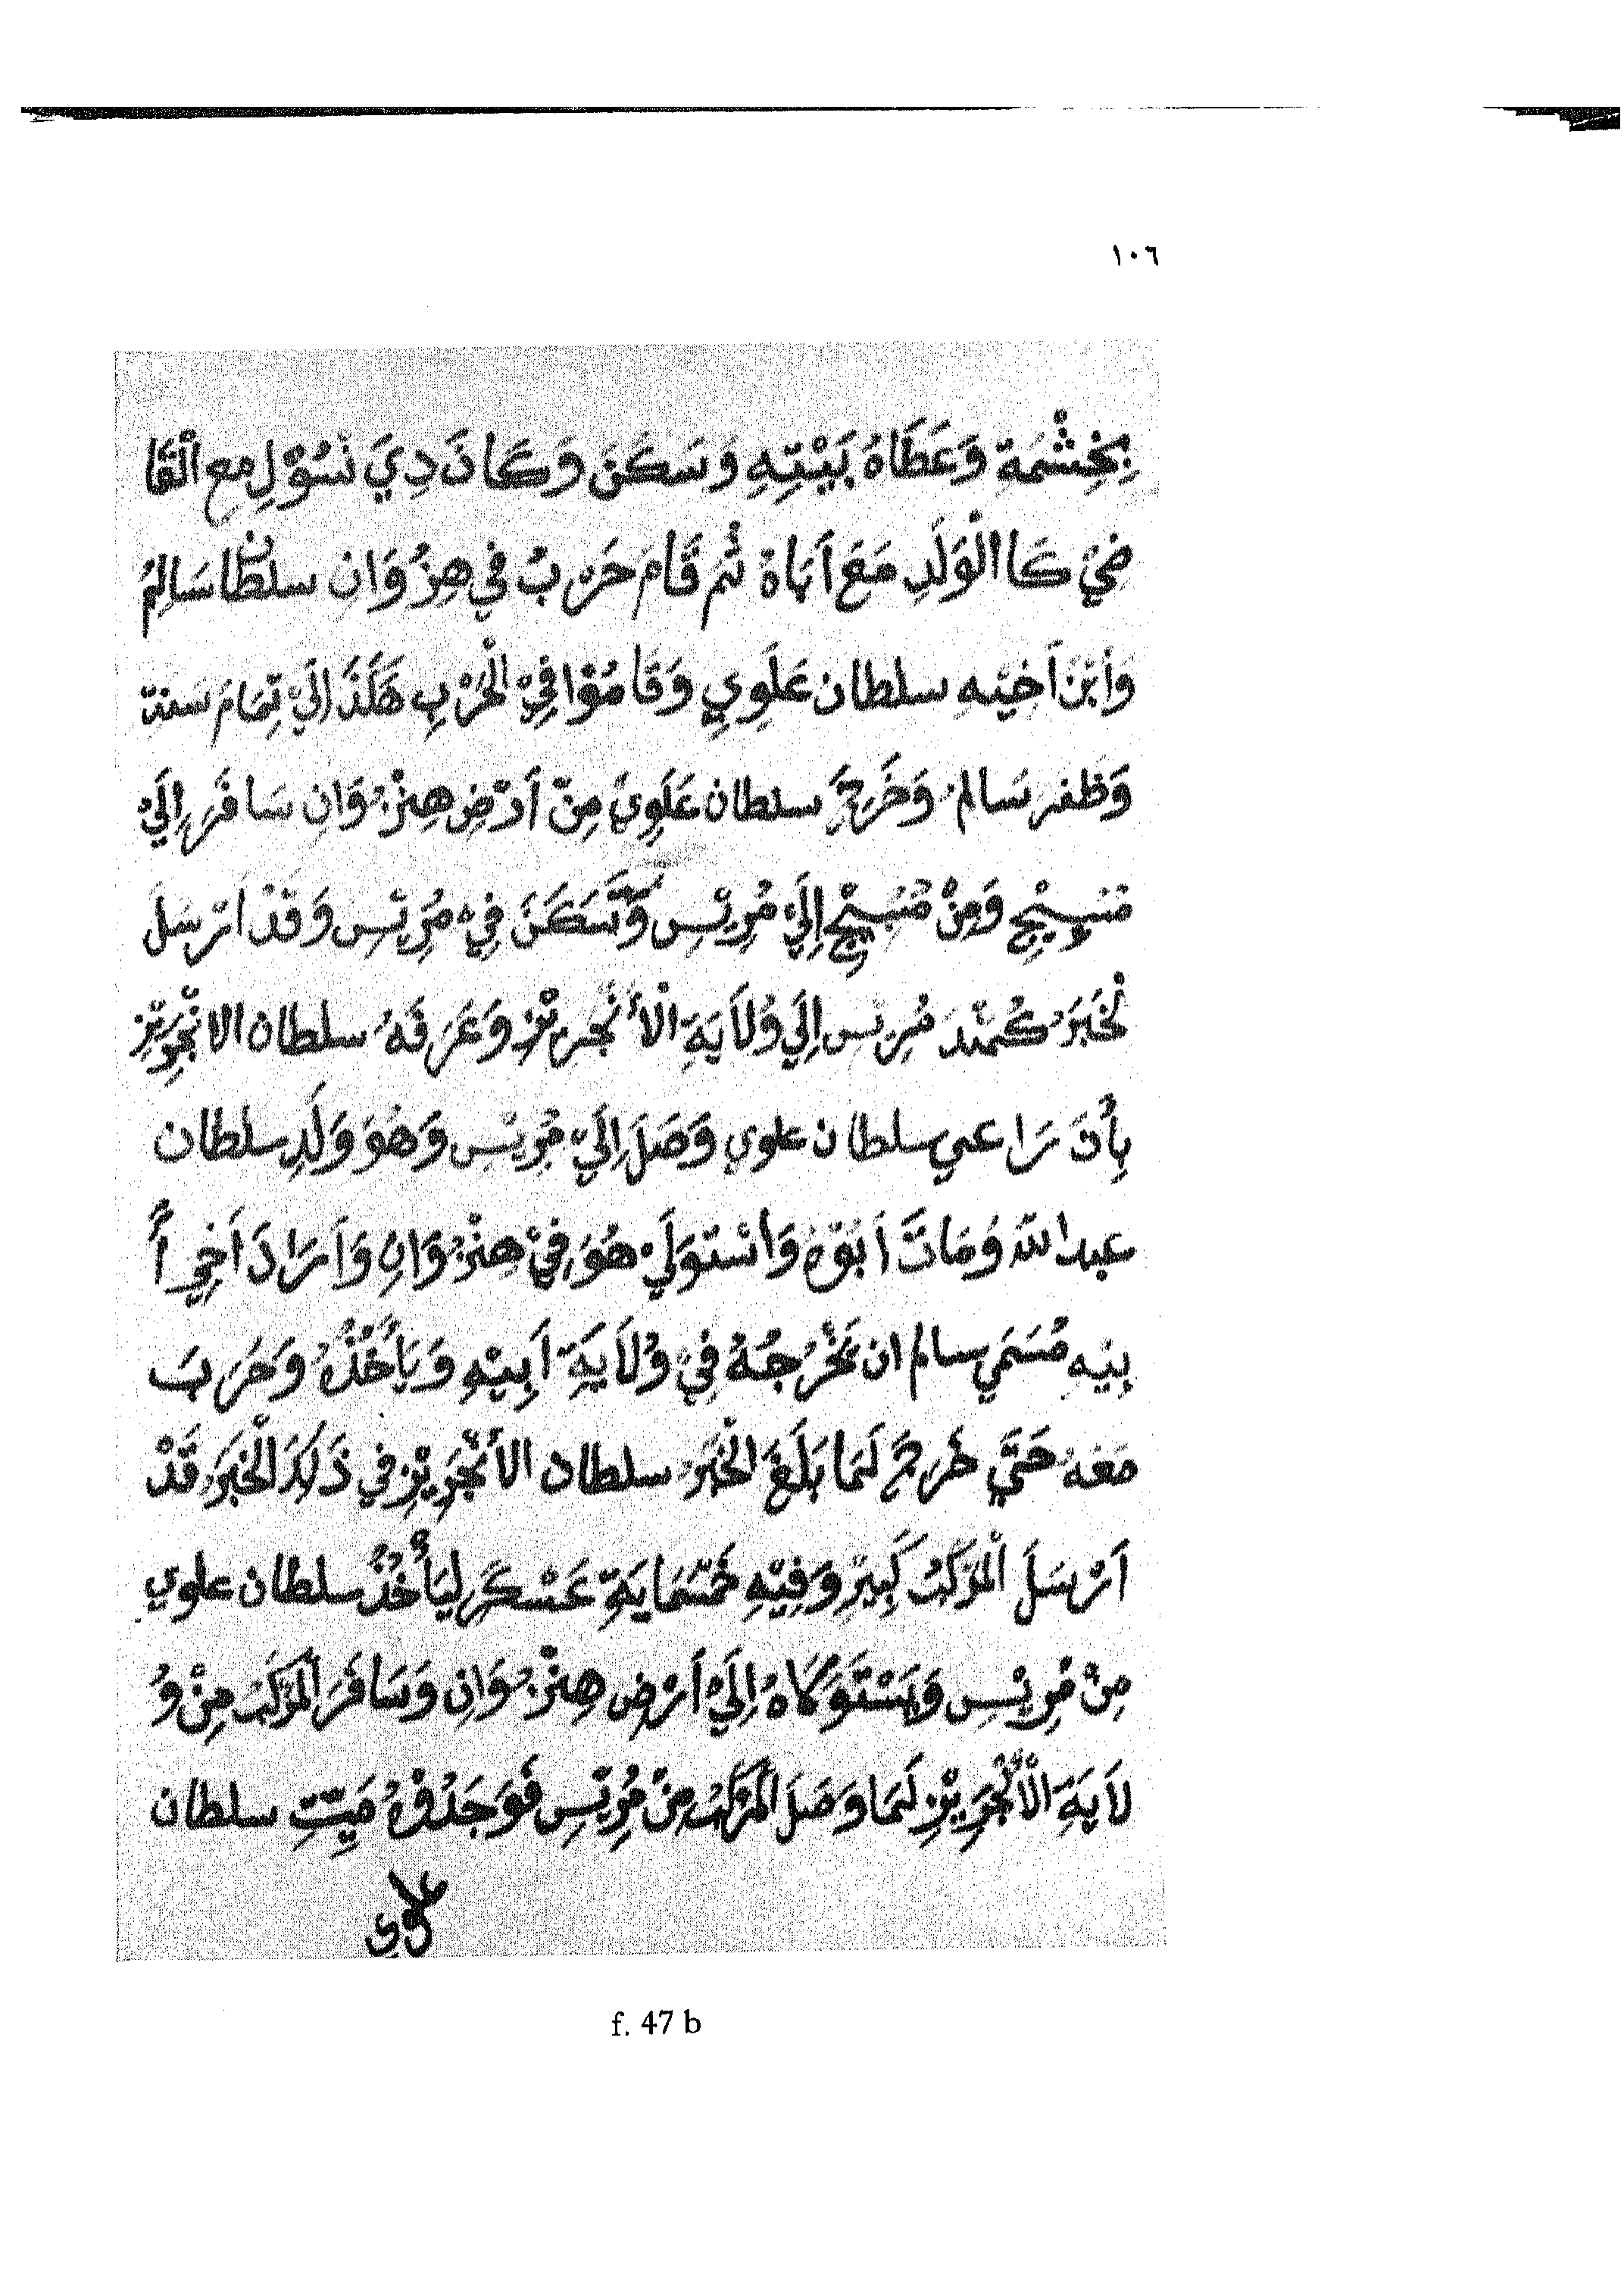 ١٠٦
بِخِشْمَة وَعَطَاهُ بَيْتِهِ وَسَكَنَ وَكَانَ دِيَ نَسُوْلِ مع الْقَا
ضِيْ كَا الْوَلَدِ مَعَ أَبَاهُ ثُم قَامَ حَرْبُ فِي هِنْزُوَانِ سلطان سَالِمُ
وَأبْنُ أَخِيْهِ سلطان عَلَوِي وَقَامُوْا فِيْ الْحَرْبِ هَكَذَا إِلَيْ تِمَامَ سَنة
وَظفر سَالم وَخَرَجَ سلطان عَلَوِيَ مِنْ أَرْضِ هِنْزُوَانِ سَافَرَ إِلَيْ
مُسَبِيْجِ وَمِنْ مُسَبِيْجِ إِلَيْ مُرِيْسِ وَسَكَنَ فِيْ مُرِيْسِ وَقَدْ اَرْسَلَ
لْخَبَرَ كُمَنْدَ مُرِيْس إِلَي وُلَايَةِ الْأَنْجَرِيْز وَعَرَفَهُ سلطان الانْجَرِيْزِ
بِأَنَ رَاعي سلطان علوي وَصَلَ إِلَيْ مُرِيْسِ وَهُوَ وَلَدِ سلطان
عبد الله وُمَاتَ أَبُوْهُ وَاسْتولَيْ هُوَ فِيْ هِنْزُوَانِ وَأَرَادَ أَخِي أَ
بِيْهِ مُسَمَي سالم ان يَخْرُجُهُ فِيْ وُلَايَةِ أَبِيْهِ وَيَأخُذُهُ وَحَرَبَ
مَعَهُ حَتَّي خَرَجَ لَمَا بَلَغَ الْخَبَرُ سلطان الأَنْجَرِيْزِ فِي ذَلِكَ الْخَبَرَ قَدْ
اَرْسَلَ الْمَرْكَبُ كَبِيْرِ وَفِيْهِ خَمْسَمَايَةِ عَسْكَرِ لِيَأْخُذُ سلطان علوي
مِنْ مُرِيْسِ وَيَسْتَوْكَاهُ إِلَيْ أَرْضِ هِنْزُوَانِ وَسَافَرَ الْمَرْكَبُ مِنْ وُ
لَايَةِ الْأَنْجَرِيْزِ لَمَا وَصَلَ الْمَرْكَبُ مِنْ مُرِيْسِ فَوَجَدُوْهُ مَيِتِ سلطان
علوي
f. 47 b